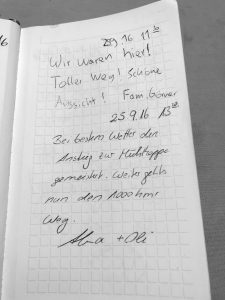 25.9.16 11
Wir waren hier!
Toller Weg! Schöne
Aussicht! Fam.
25.9.16 13
Bei bestem Wetter den
Anstieg zur
gemeistert. Weiter geht's
nun den 1000hm
Weg.
+ Oli